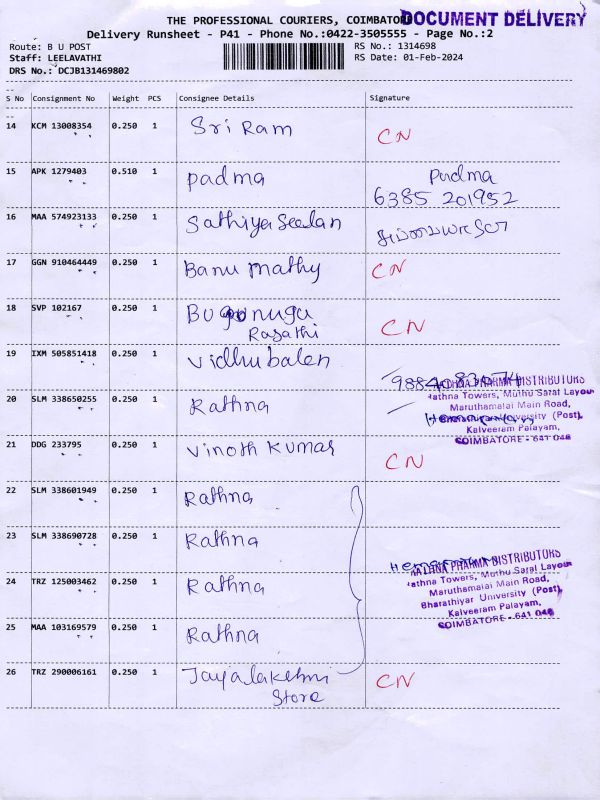 THE PROFESSIONAL COURIERS, COIMBATORE
DOCUMENT DELIVERY
Delivery Runsheet - P41 - Phone No.:0422-3505555 - Page No.:2
Route: B U POST
RS No.: 1314698
Staff: LEELAVATHI
RS Date: 01-Feb-2024
DRS No.: DCJB131469802
S No Consignment No Weight PCS Consignee Details Signature
14 KCM 13008354 0.250 1 Sri Ram CN
15 APK 1279403 0.510 1 padma Padma
6385 201952
16 MAA 574923133 0.250 1 Sathiyaseelan
17 GGN 910464449 0.250 1 Banu mathy CN
18 SVP 102167 0.250 1 CN
Rasathi
19 IXM 505851418 0.250 1 vidhubalen
9884083074
20 SLM 338650255 0.250 1 Rathna
PHARMA DISTRIBUTORS
Rathna Towers, Muthu Saral Layout
Maruthamalai Main Road,
Bharathiyar University (Post),
Kalveeram Palayam,
COIMBATORE - 641 046
21 DDG 233795 0.250 1 Vinoth Kumar CN
22 SLM 338601949 0.250 1 Rathna
23 SLM 338690728 0.250 1 Rathna
24 TRZ 125003462 0.250 1 Rathna
PHARMA DISTRIBUTORS
Rathna Towers, Muthu Saral Layout
Maruthamalai Main Road,
Bharathiyar University (Post),
Kalveeram Palayam,
COIMBATORE - 641 046
25 MAA 103169579 0.250 1 Rathna
26 TRZ 290006161 0.250 1 Jayalakshmi CN
Store